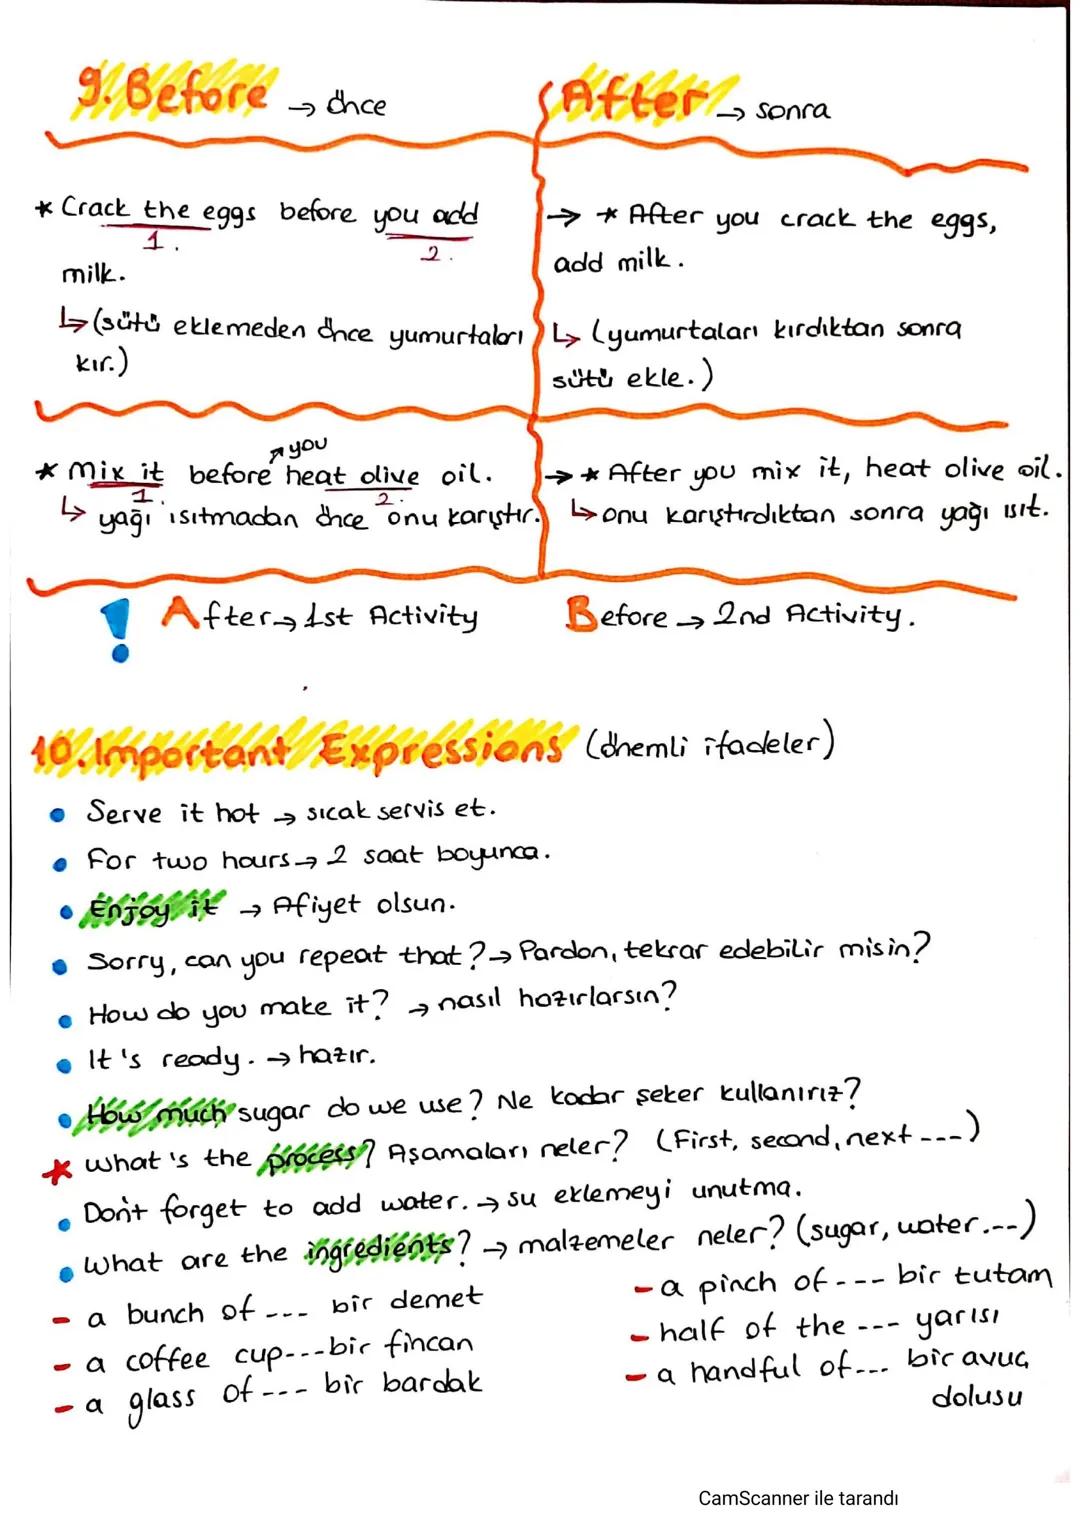 9. Before → önce
After → sonra
* Crack the eggs before you add
1. 2.
milk.
↳ (sütü eklemeden önce yumurtaları
kır.)
→ * After you crack the eggs,
add milk.
↳ (yumurtaları kırdıktan sonra
sütü ekle.)
you
* Mix it before heat olive oil.
1. 2.
↳ yağı ısıtmadan önce onu karıştır.
→ * After you mix it, heat olive oil.
↳ onu karıştırdıktan sonra yağı ısıt.
! After → 1st Activity
Before → 2nd Activity.
10. Important Expressions (önemli ifadeler)
• Serve it hot → sıcak servis et.
• For two hours → 2 saat boyunca.
• Enjoy it → Afiyet olsun.
• Sorry, can you repeat that? → Pardon, tekrar edebilir misin?
• How do you make it? → nasıl hazırlarsın?
• It's ready. → hazır.
• How much sugar do we use? Ne kadar şeker kullanırız?
* What's the process? Aşamaları neler? (First, second, next ---)
• Don't forget to add water. → su eklemeyi unutma.
• What are the ingredients? → malzemeler neler? (sugar, water.--)
- a bunch of --- bir demet
- a coffee cup--- bir fincan
- a glass of --- bir bardak
- a pinch of --- bir tutam
- half of the --- yarısı
- a handful of... bir avuç
dolusu
CamScanner ile tarandı